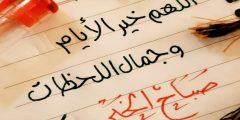 اللهم خير الأيام
وجمال اللحظات
صباح الخير